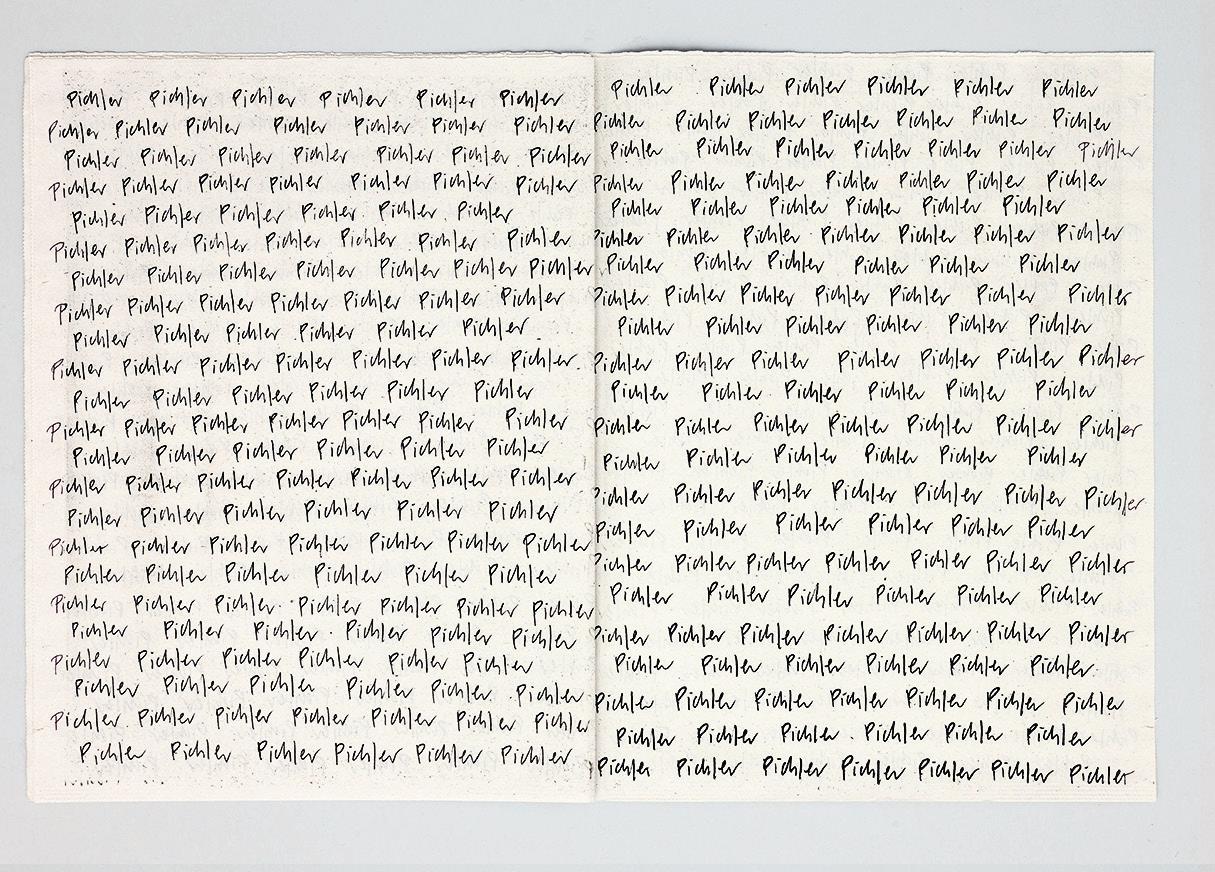 Pichler Pichler Pichler Pichler Pichler Pichler
Pichler Pichler Pichler Pichler Pichler Pichler Pichler
Pichler Pichler Pichler Pichler Pichler Pichler Pichler
Pichler Pichler Pichler Pichler Pichler Pichler Pichler
Pichler Pichler Pichler Pichler Pichler Pichler
Pichler Pichler Pichler Pichler Pichler Pichler Pichler
Pichler Pichler Pichler Pichler Pichler Pichler Pichler
Pichler Pichler Pichler Pichler Pichler Pichler Pichler
Pichler Pichler Pichler Pichler Pichler Pichler
Pichler Pichler Pichler Pichler Pichler Pichler Pichler
Pichler Pichler Pichler Pichler Pichler Pichler
Pichler Pichler Pichler Pichler Pichler Pichler Pichler
Pichler Pichler Pichler Pichler Pichler Pichler
Pichler Pichler Pichler Pichler Pichler Pichler Pichler
Pichler Pichler Pichler Pichler Pichler Pichler
Pichler Pichler Pichler Pichler Pichler Pichler Pichler
Pichler Pichler Pichler Pichler Pichler Pichler
Pichler Pichler Pichler Pichler Pichler Pichler Pichler
Pichler Pichler Pichler Pichler Pichler Pichler
Pichler Pichler Pichler Pichler Pichler Pichler
Pichler Pichler Pichler Pichler Pichler Pichler
Pichler Pichler Pichler Pichler Pichler Pichler Pichler
Pichler Pichler Pichler Pichler Pichler Pichler
Pichler Pichler Pichler Pichler Pichler Pichler
Pichler Pichler Pichler Pichler Pichler Pichler Pichler
Pichler Pichler Pichler Pichler Pichler Pichler Pichler
Pichler Pichler Pichler Pichler Pichler Pichler Pichler
Pichler Pichler Pichler Pichler Pichler Pichler
Pichler Pichler Pichler Pichler Pichler Pichler Pichler
Pichler Pichler Pichler Pichler Pichler Pichler
Pichler Pichler Pichler Pichler Pichler Pichler Pichler
Pichler Pichler Pichler Pichler Pichler Pichler
Pichler Pichler Pichler Pichler Pichler Pichler Pichler
Pichler Pichler Pichler Pichler Pichler Pichler
Pichler Pichler Pichler Pichler Pichler Pichler Pichler
Pichler Pichler Pichler Pichler Pichler Pichler
Pichler Pichler Pichler Pichler Pichler Pichler Pichler
Pichler Pichler Pichler Pichler Pichler Pichler
Pichler Pichler Pichler Pichler Pichler Pichler Pichler
Pichler Pichler Pichler Pichler Pichler Pichler
Pichler Pichler Pichler Pichler Pichler Pichler Pichler
Pichler Pichler Pichler Pichler Pichler Pichler
Pichler Pichler Pichler Pichler Pichler Pichler Pichler
Pichler Pichler Pichler Pichler Pichler Pichler
Pichler Pichler Pichler Pichler Pichler Pichler Pichler